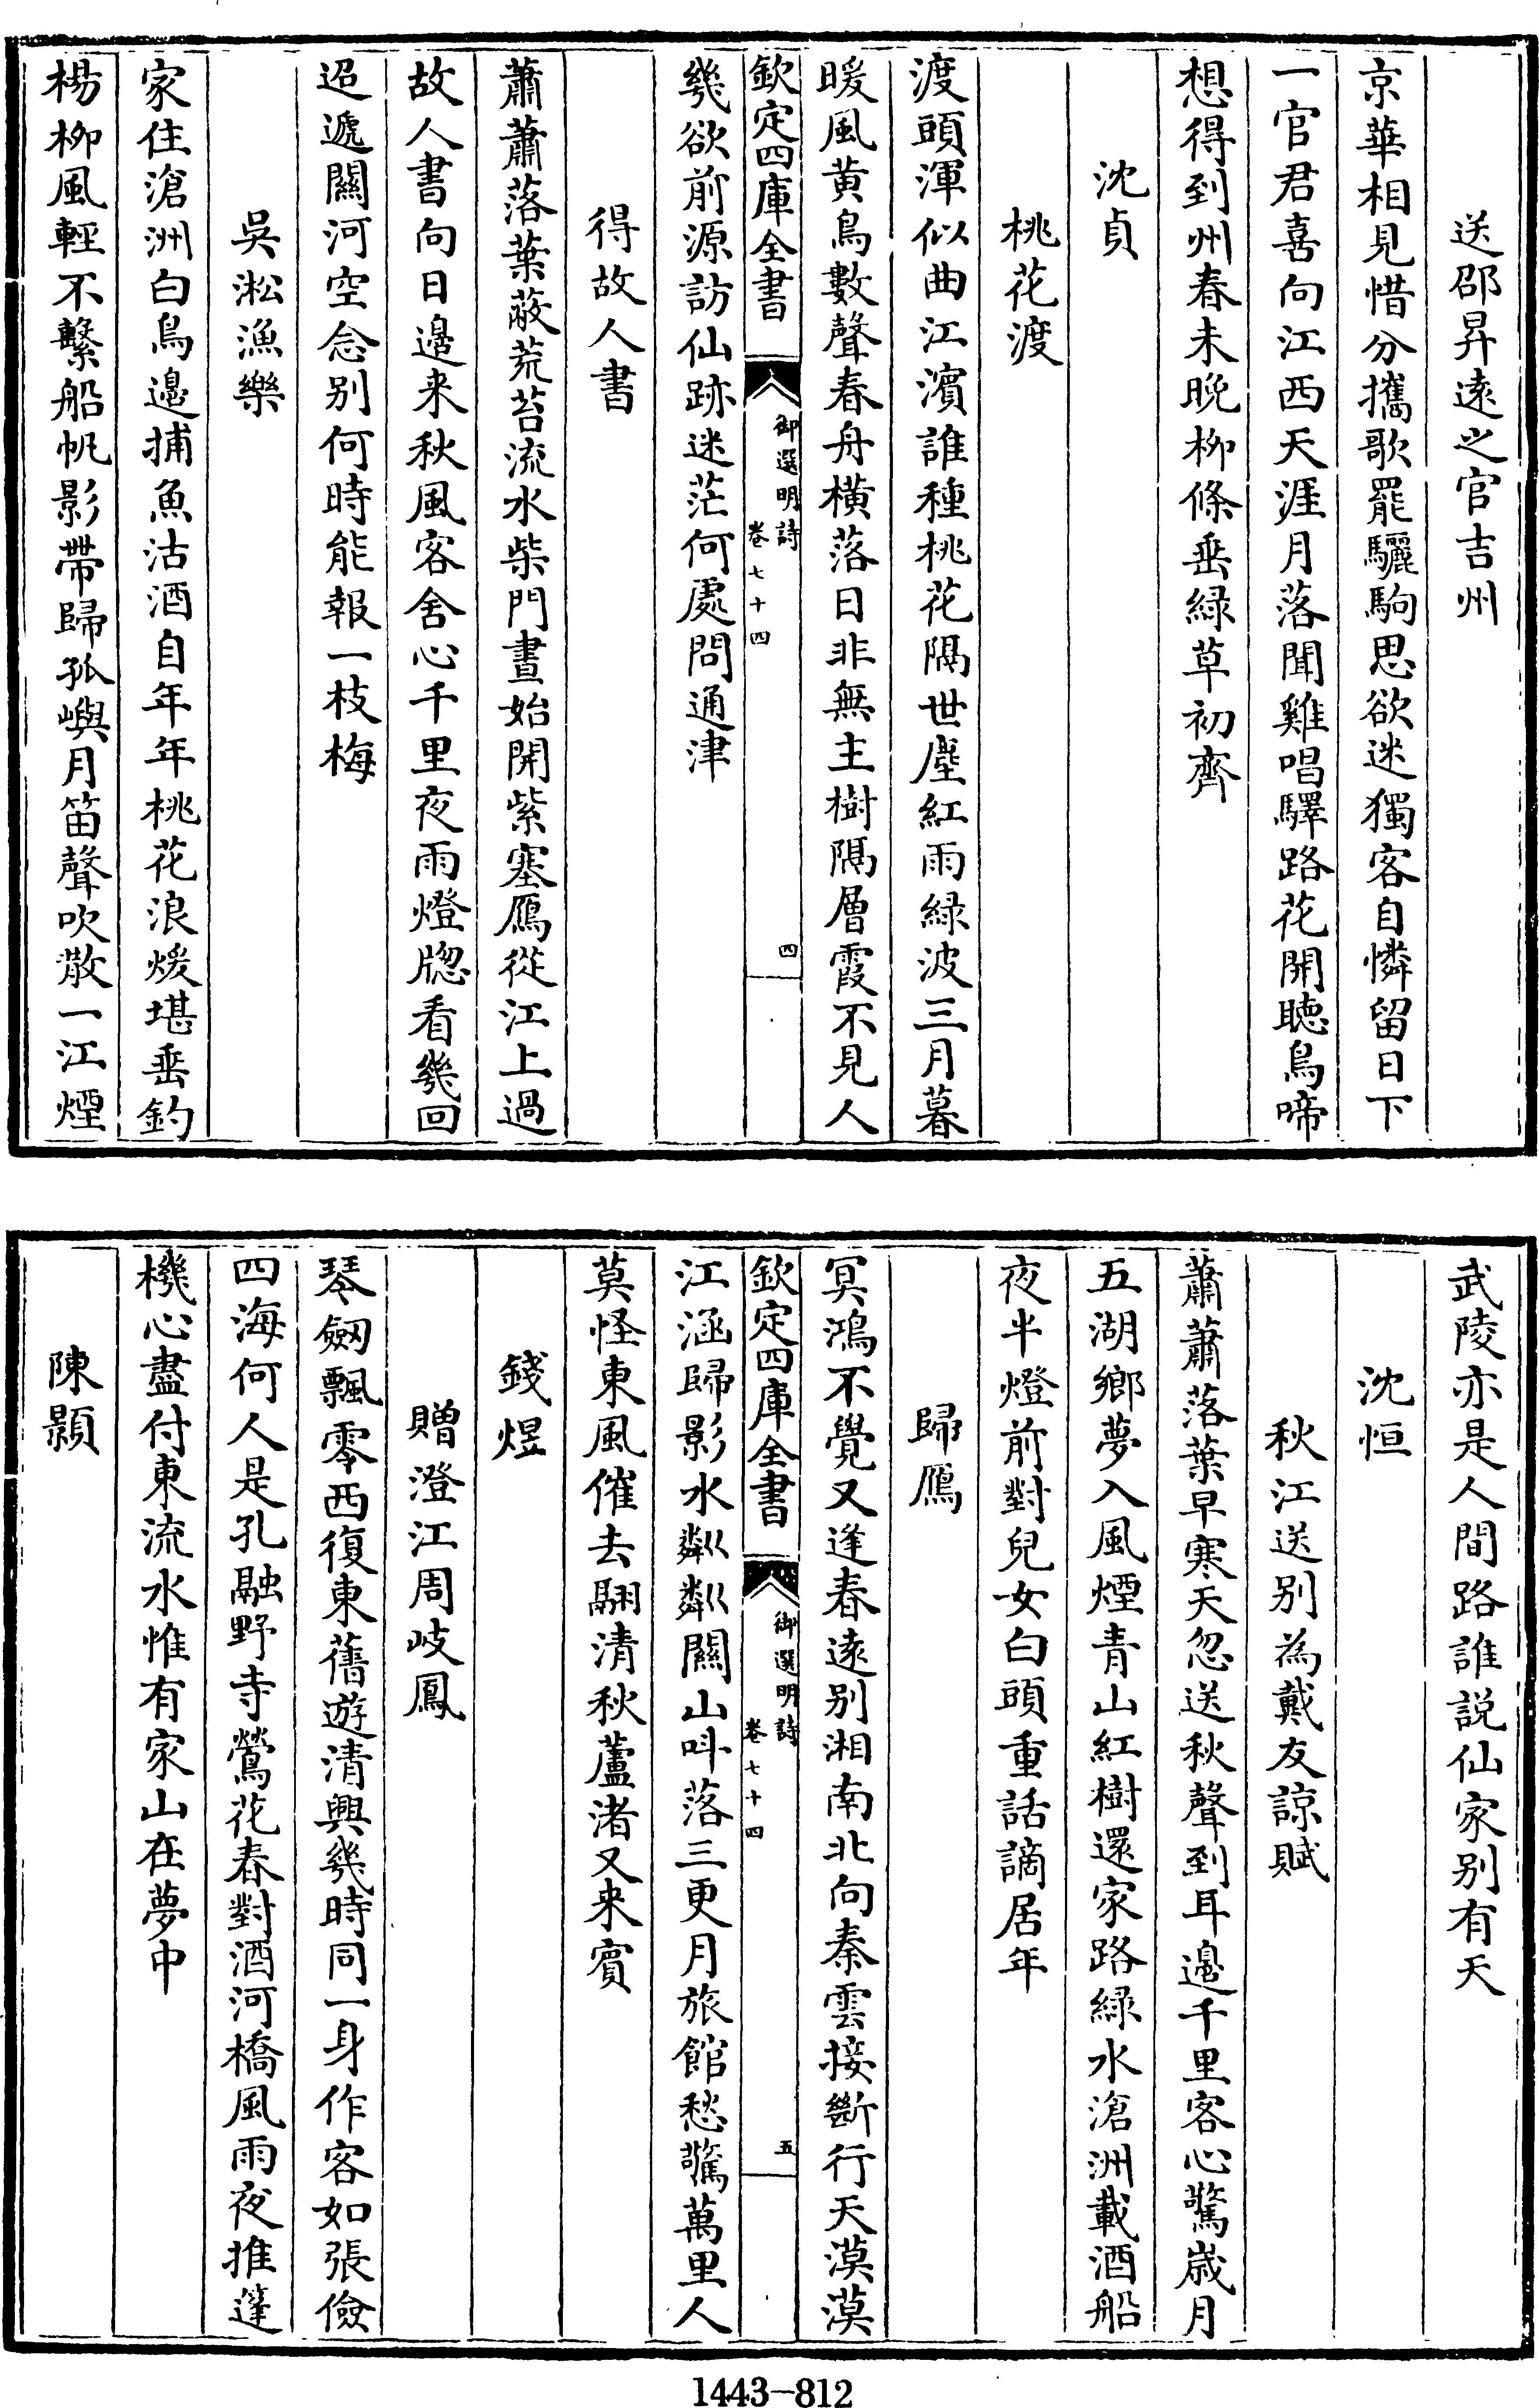 送邵昇遠之官吉州
京華相見惜分攜歌罷驪駒思欲迷獨客自憐留日下
一官君喜向江西天涯月落聞雞唱驛路花開聴鳥啼
想得到州春未晩柳條垂緑草初齊
沈貞
桃花渡
渡頭渾似曲江濱誰種桃花隔世塵紅雨緑波三月暮
暖風黄鳥數聲春舟橫落日非無主樹隔層霞不見人
欽定四庫全書
御選明詩
卷七十四
四
幾欲前源訪仙跡迷茫何處問通津
得故人書
蕭蕭落葉蔽荒苔流水柴門晝始開紫塞鴈從江上過
故人書向日邊来秋風客舍心千里夜雨燈牕看幾回
迢遞關河空念别何時能報一枝梅
吳淞漁樂
家住滄洲白鳥邊捕魚沽酒自年年桃花浪煖堪垂釣
楊柳風輕不繫船帆影帶歸孤嶼月笛聲吹散一江煙
武陵亦是人間路誰説仙家别有天
沈恒
秋江送别為戴友諒賦
蕭蕭落葉早寒天忽送秋聲到耳邊千里客心驚歳月
五湖鄉夢入風煙青山紅樹還家路緑水滄洲載酒船
夜半燈前對兒女白頭重話謫居年
歸鴈
冥鴻不覺又逢春遠别湘南北向秦雲接斷行天漠漠
欽定四庫全書
御選明詩
卷七十四
五
江涵歸影水粼粼關山呌落三更月旅館愁驚萬里人
莫怪東風催去翮清秋蘆渚又来賓
錢煜
贈澄江周岐鳳
琴劒飄零西復東舊遊清興幾時同一身作客如張儉
四海何人是孔融野寺鶯花春對酒河橋風雨夜推篷
機心盡付東流水惟有家山在夢中
陳顥
1443-812